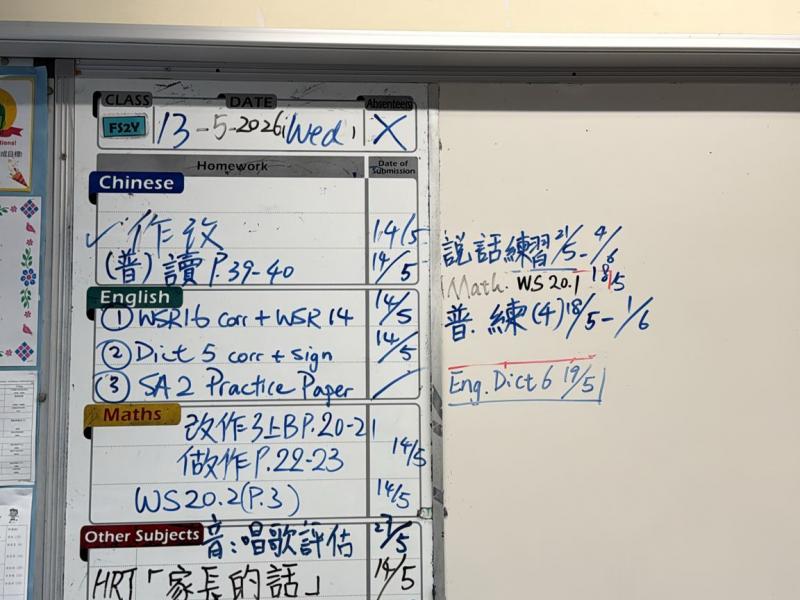 CLASS DATE Absentees
FS2Y 13-5-2026, Wed, X
Homework Date of Submission
Chinese
✓ 作改 14/5
(普) 讀 P.39-40 14/5
English
① WSR16 corr + WSR 14 14/5
② Dict 5 corr + sign 14/5
③ SA2 Practice Paper /
Maths
改作3上B P.20-21
做作 P.22-23 14/5
WS 20.2 (P.3) 14/5
Other Subjects 音:唱歌評估 27/5
HRT「家長的話」 14/5
説話練習 21/5 - 4/6
Math. WS 20.1 18/5
普. 練(4) 18/5 - 1/6
Eng. Dict 6 19/5